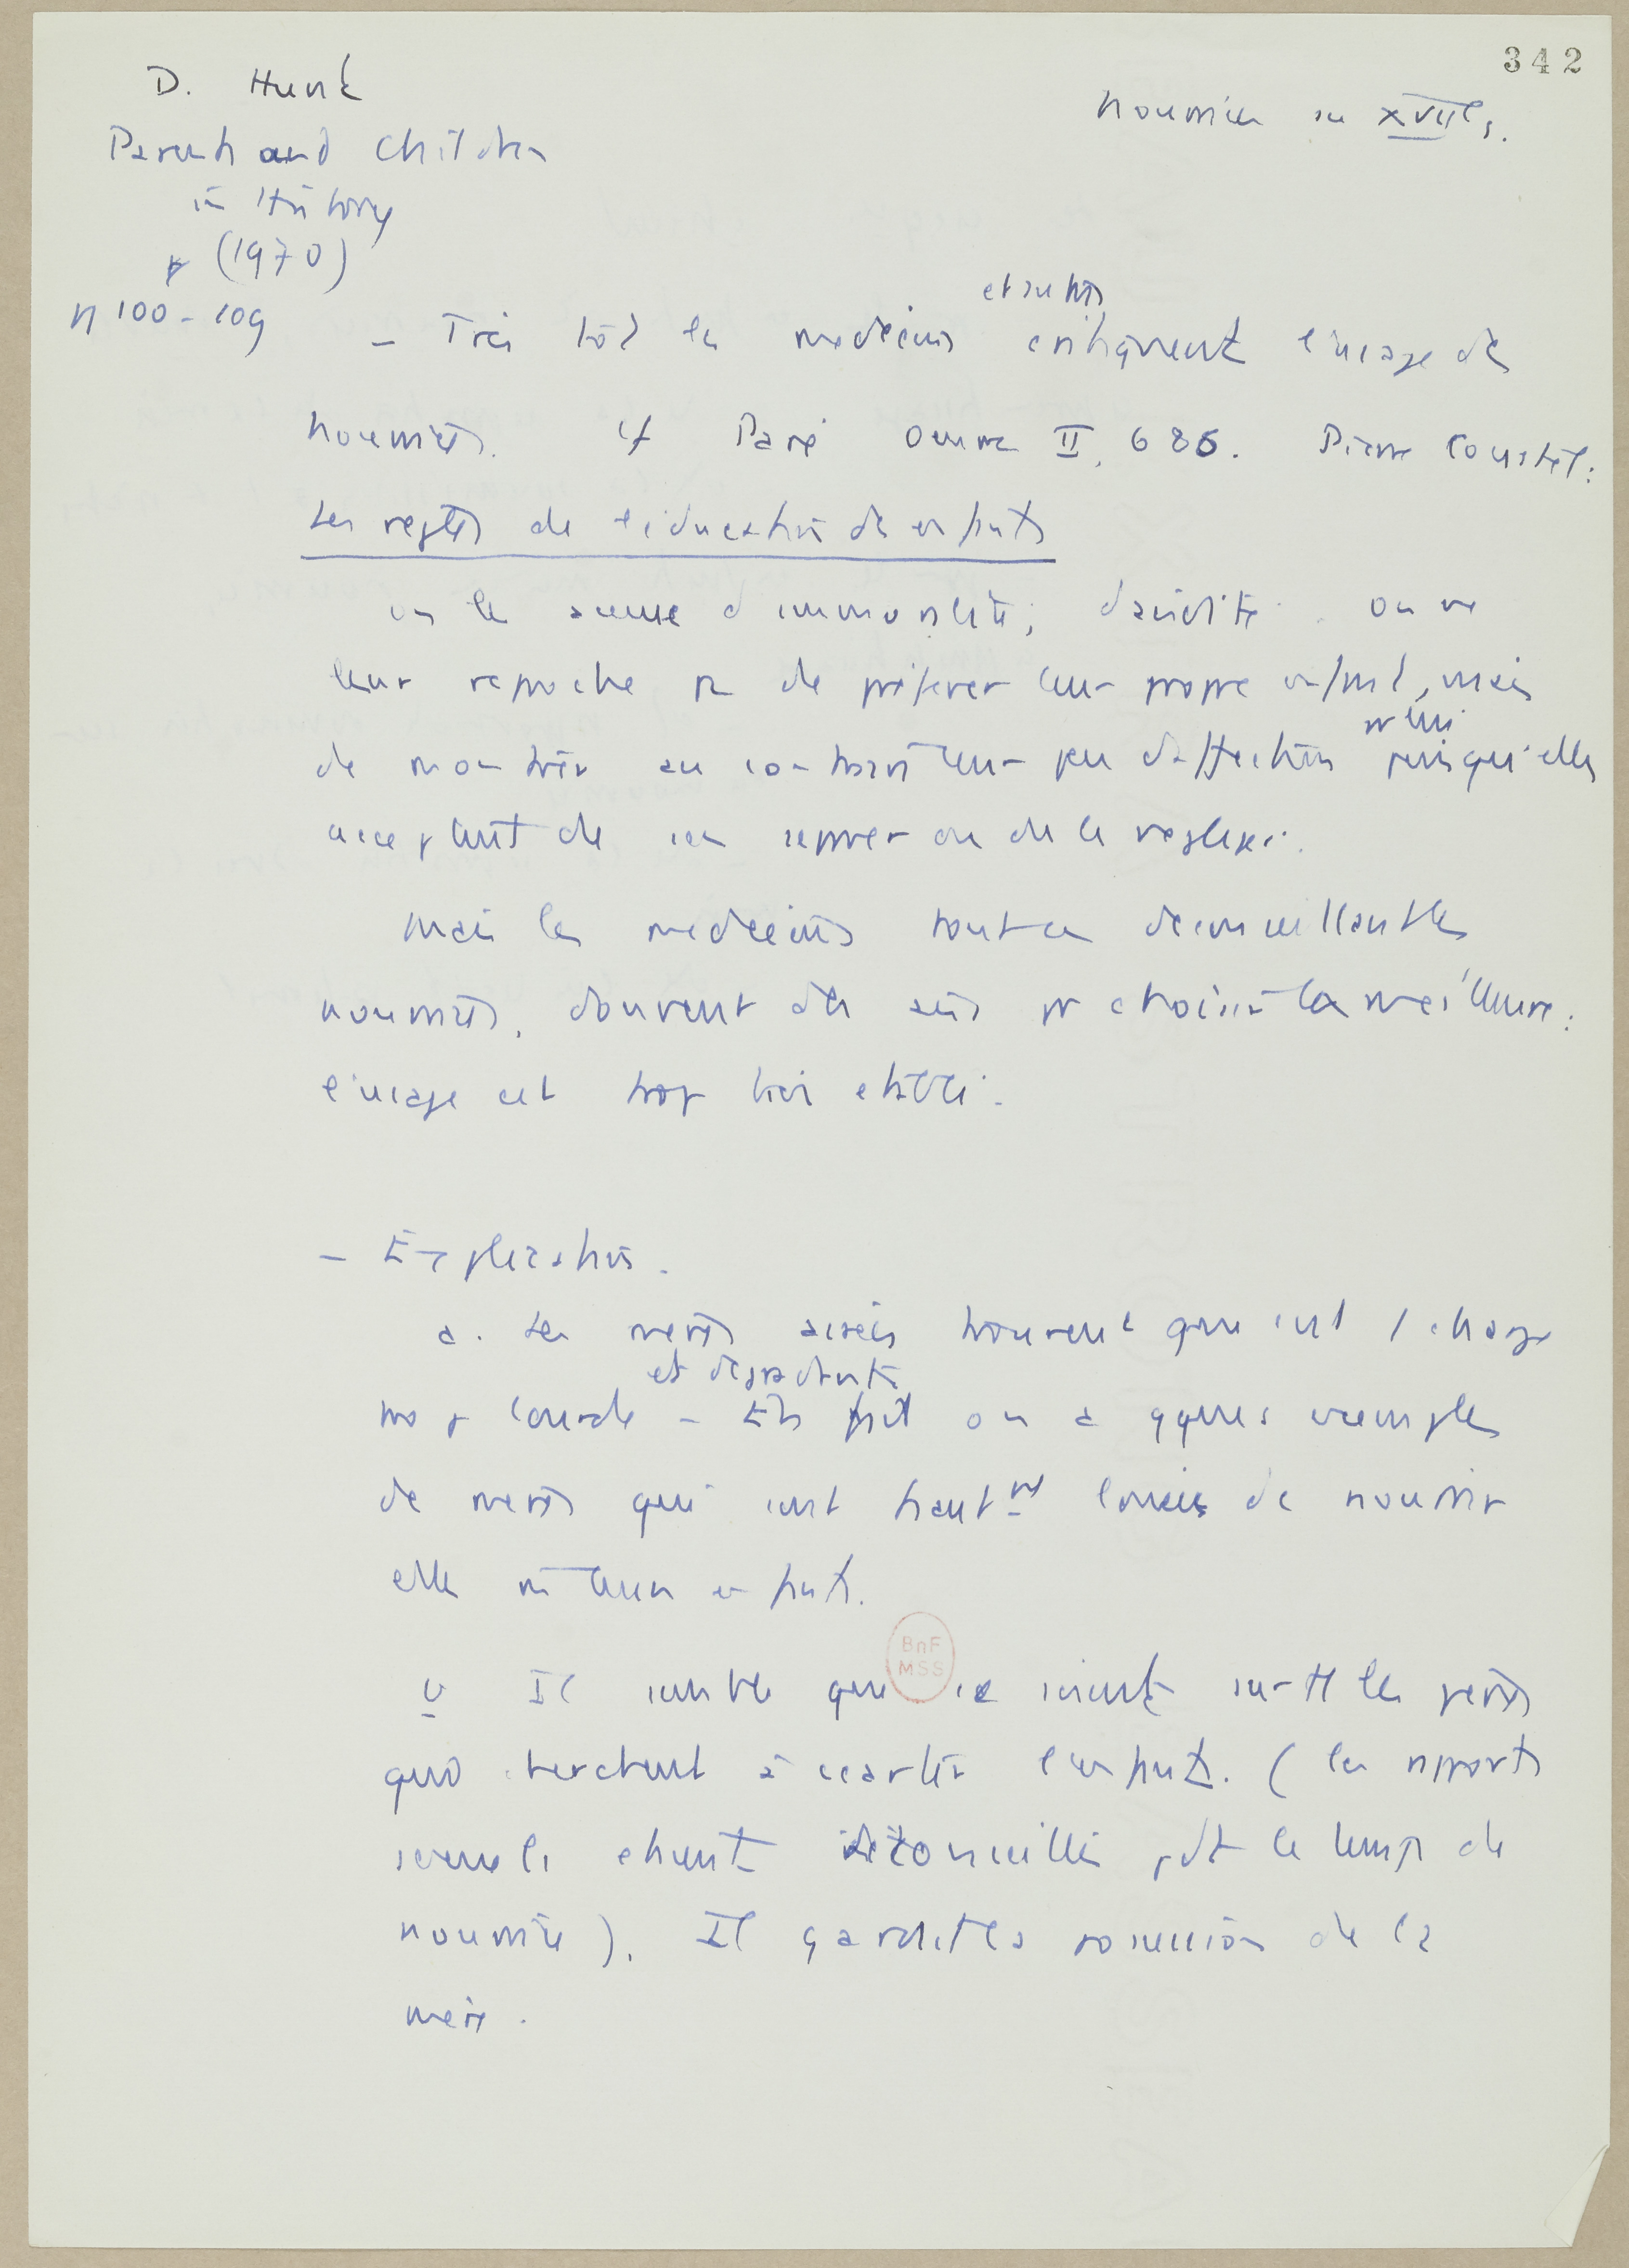 342
D. Hunt
Parents and Children
in History
(1970)
p 100-109
Nourrices au XVIIe s.
et autres
- Très tôt les médecins critiquent l'usage des
nourrices. cf Paré Oeuvres II, 685. Pierre Coustel :
Les règles de l'éducation des enfants
on les accuse d'immoralité, d'avidité. On ne
leur reproche pas de préférer leur propre enfant, mais
pr lui
de montrer au contraire leur peu d'affection puisqu'elles
acceptent de s'en séparer ou de le négliger.
Mais les médecins tout en déconseillant les
nourrices, donnent des avis pr choisir la meilleure :
l'usage est trop bien établi.
- Explication.
a. Les mères aisées trouvent que c'est 1 charge
et dégradante
trop lourde - En fait on a qques exemples
de mères qui sont hautmt louées de nourrir
elles mêmes leurs enfants.
b Il semble que ce soient surtt les pères
qui cherchent à écarter l'enfant. (les rapports
sexuels étant déconseillés pdt le temps de
nourrice). Il gardait la possession de la
mère.
BnF
MSS